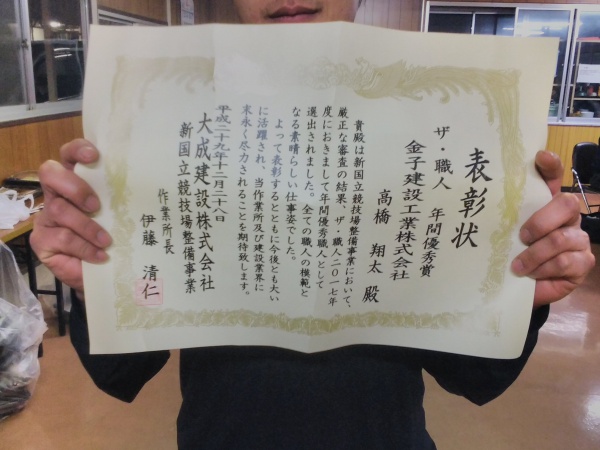 表彰状
ザ・職人 年間優秀賞
金子建設工業株式会社
高橋 翔太 殿
貴殿は新国立競技場整備事業において、
厳正な審査の結果、ザ・職人二〇一七年
度におきまして年間優秀職人として
選出されました。全ての職人の模範と
なる素晴らしい仕事姿でした。
よって表彰するとともに今後とも大い
に活躍され、当作業所及び建設業界に
末永く尽力されることを期待致します。
平成二十九年十二月二十八日
大成建設株式会社
新国立競技場整備事業
作業所長
伊藤 清仁